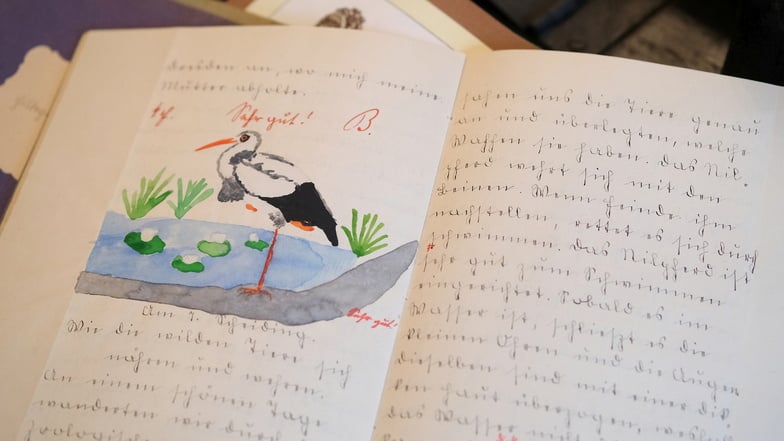 Dresden an, wo mich meine
Mutter abholte.
Sehr gut! B.
Sehr gut!
Am 7. Scheiding.
Wie die wilden Tiere sich
nähren und wehren.
An einem schönen Tage
wanderten wir durch
sahen uns die Tiere genau
an und überlegten, welche
Waffen sie haben. Das Nil-
pferd wehrt sich mit den
Beinen. Wenn Feinde ihm
nachstellen, rettet es sich durch
schwimmen. Das Nilpferd ist
sehr gut zum Schwimmen
eingerichtet. Sobald es im
Wasser ist, schließt es die
kleinen Ohren und die Augen
dieselben sind mit einer dik
ken Haut überzogen,
das Wasser